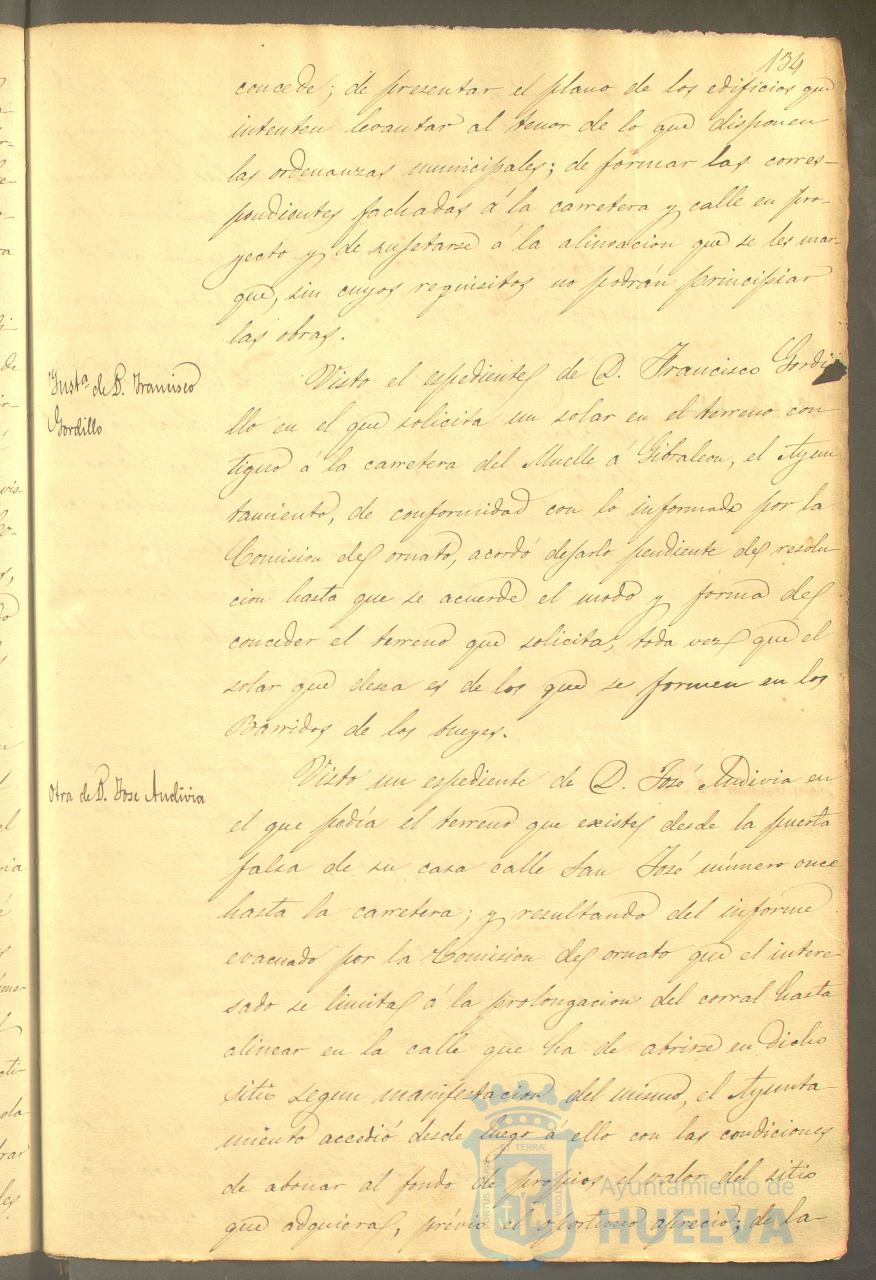 134
concede; de presentar el plano de los edificios que
intenten levantar al tenor de lo que disponen
las ordenanzas municipales; de formar las corres-
pondientes fachadas á la carretera y calle en pro-
yecto y de sujetarse á la alineacion que se les mar-
que, sin cuyos requisitos no podrán principiar
las obras.
Inst.ª de D. Francisco
Gordillo
Visto el espediente de D. Francisco Gordi
llo en el que solicita un solar en el terreno con
tiguo á la carretera del Muelle á Gibraleon, el Ayun
tamiento, de conformidad con lo informado por la
Comision de ornato, acordó dejarlo pendiente de resolu-
cion hasta que se acuerde el modo y forma de
conceder el terreno que solicita, toda vez que el
solar que desea es de los que se formen en los
Barridos de los bueyes.
Otra de D. Jose Andivia
Visto un espediente de D. José Andivia en
el que pedía el terreno que existe desde la puerta
falsa de su casa calle San José número once
hasta la carretera; y resultando del informe
evacuado por la Comision de ornato que el intere-
sado se limita á la prolongacion del corral hasta
alinear en la calle que ha de abrirse en dicho
sitio segun manifestacion del mismo, el Ayunta-
miento accedió desde luego á ello con las condiciones
de abonar al fondo de propios el valor del sitio
que adquiera, prévio el oportuno aprecio; de la-
Ayuntamiento de
HUELVA